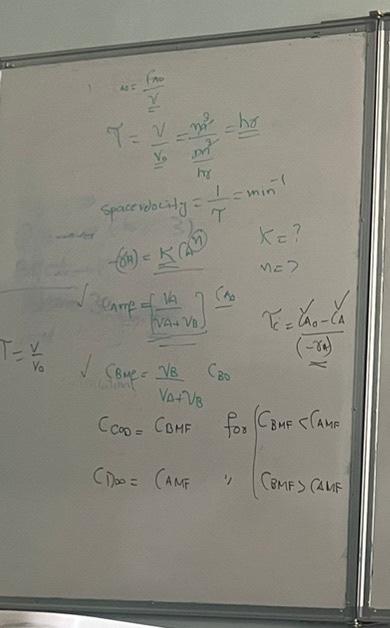 τ = V/V₀ = m³/(m³/hr) = hr
space velocity = 1/τ = min⁻¹
(-rA) = K CAⁿ K = ?
n = ?
✓ CAMF = [VA/(VA+VB)] CA0
τC = (CA0 - CA)/(-rA)
τ = V/V₀
✓ CBMF = VB/(VA+VB) CB0
CC∞ = CBMF for CBMF < CAMF
CD∞ = CAMF " CBMF > CAMF